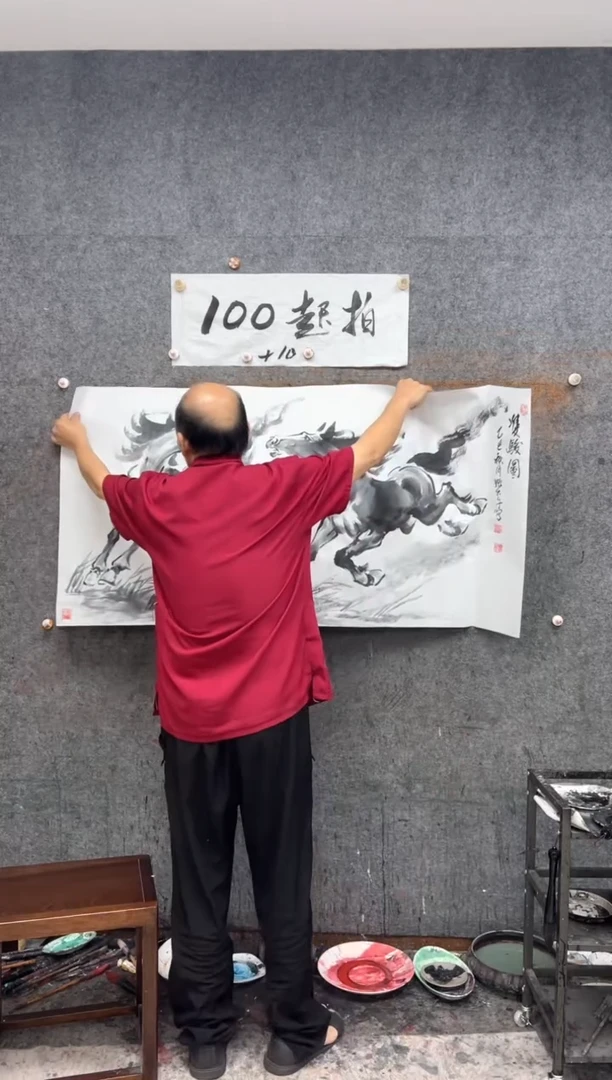 100起拍
+10
雙駿圖
乙巳秋月